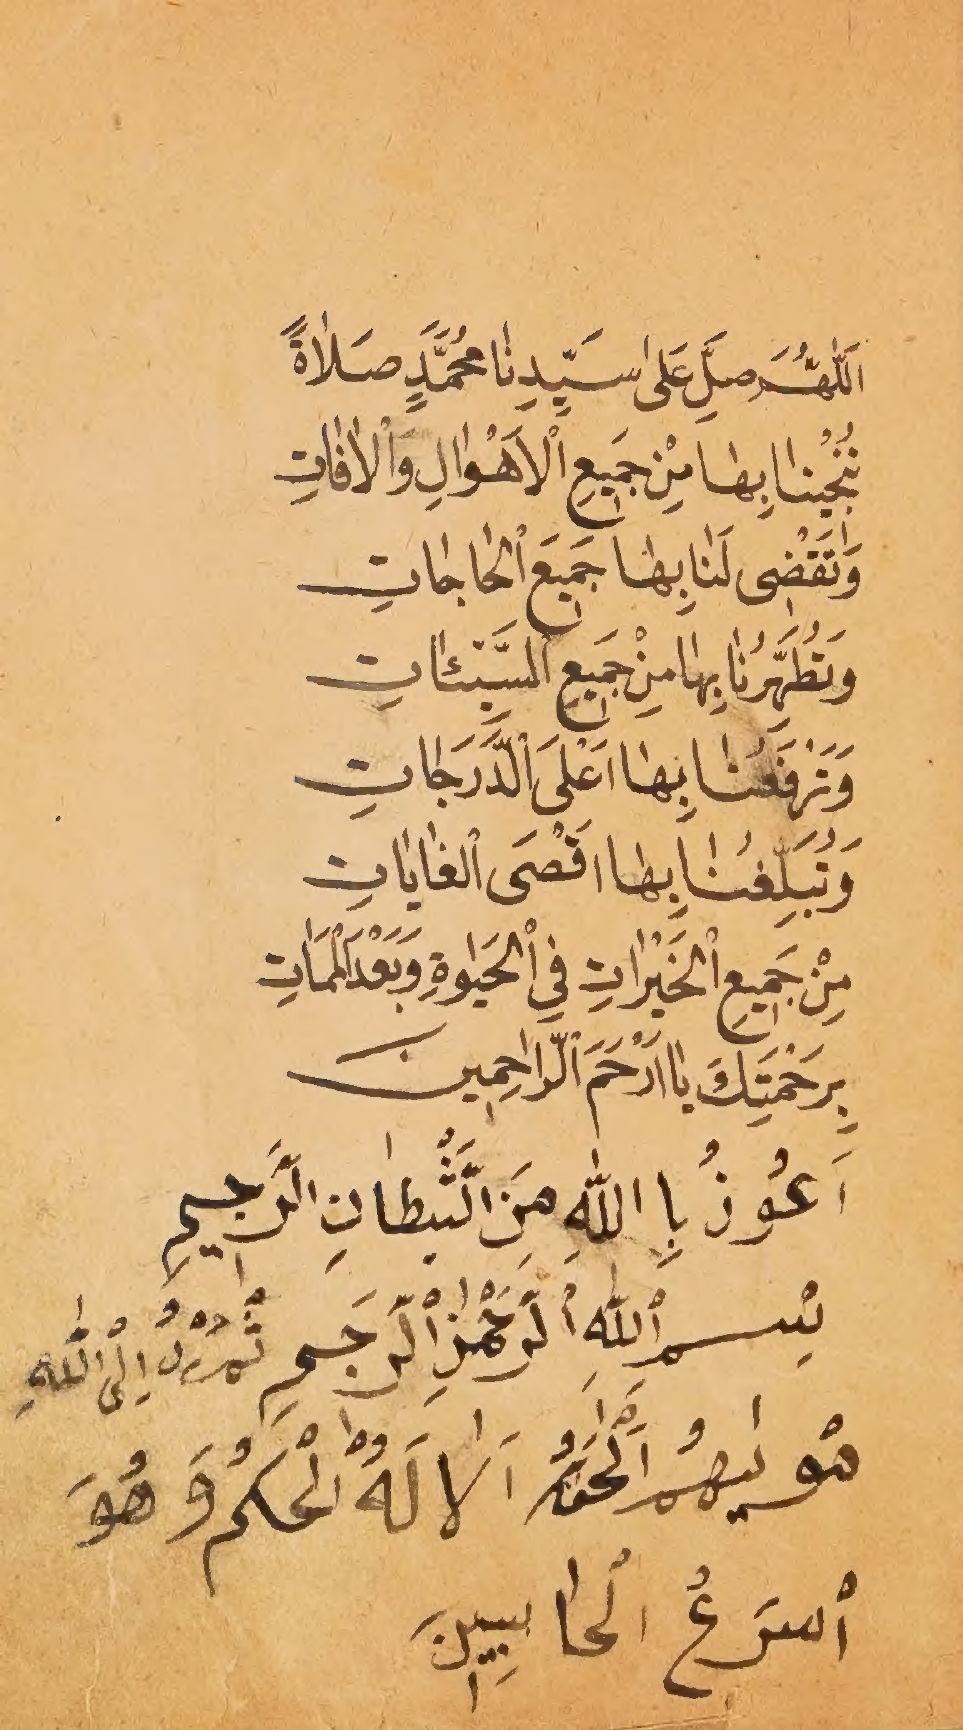 اَللّٰهُمَّ صَلِّ عَلٰى سَيِّدِنَا مُحَمَّدٍ صَلَاةً
تُنْجِينَا بِهَا مِنْ جَمِيعِ ٱلْاَهْوَالِ وَٱلْاٰفَاتِ
وَتَقْضِى لَنَا بِهَا جَمِيعَ ٱلْحَاجَاتِ
وَتُطَهِّرُنَا بِهَا مِنْ جَمِيعِ ٱلسَّيِّئَاتِ
وَتَرْفَعُنَا بِهَا اَعْلَى ٱلدَّرَجَاتِ
وَتُبَلِّغُنَا بِهَا اَقْصَى ٱلْغَايَاتِ
مِنْ جَمِيعِ ٱلْخَيْرَاتِ فِي ٱلْحَيٰوةِ وَبَعْدَ ٱلْمَمَاتِ
بِرَحْمَتِكَ يَا اَرْحَمَ ٱلرَّاحِمِينَ
اَعُوذُ بِا اللّٰهِ مِنَ الشَّيْطَانِ الرَّجِيمِ
بِسْمِ ٱللّٰهِ ٱلرَّحْمٰنِ ٱلرَّحِيمِ ثُمَّ رُدُّ اِلَى اللّٰهِ
مُولٰيهُمُ ٱلْحَقِّ اَلَا لَهُ ٱلْحُكْمُ وَ هُوَ
ٱسرَعُ ٱلْحَاسِبِينَ